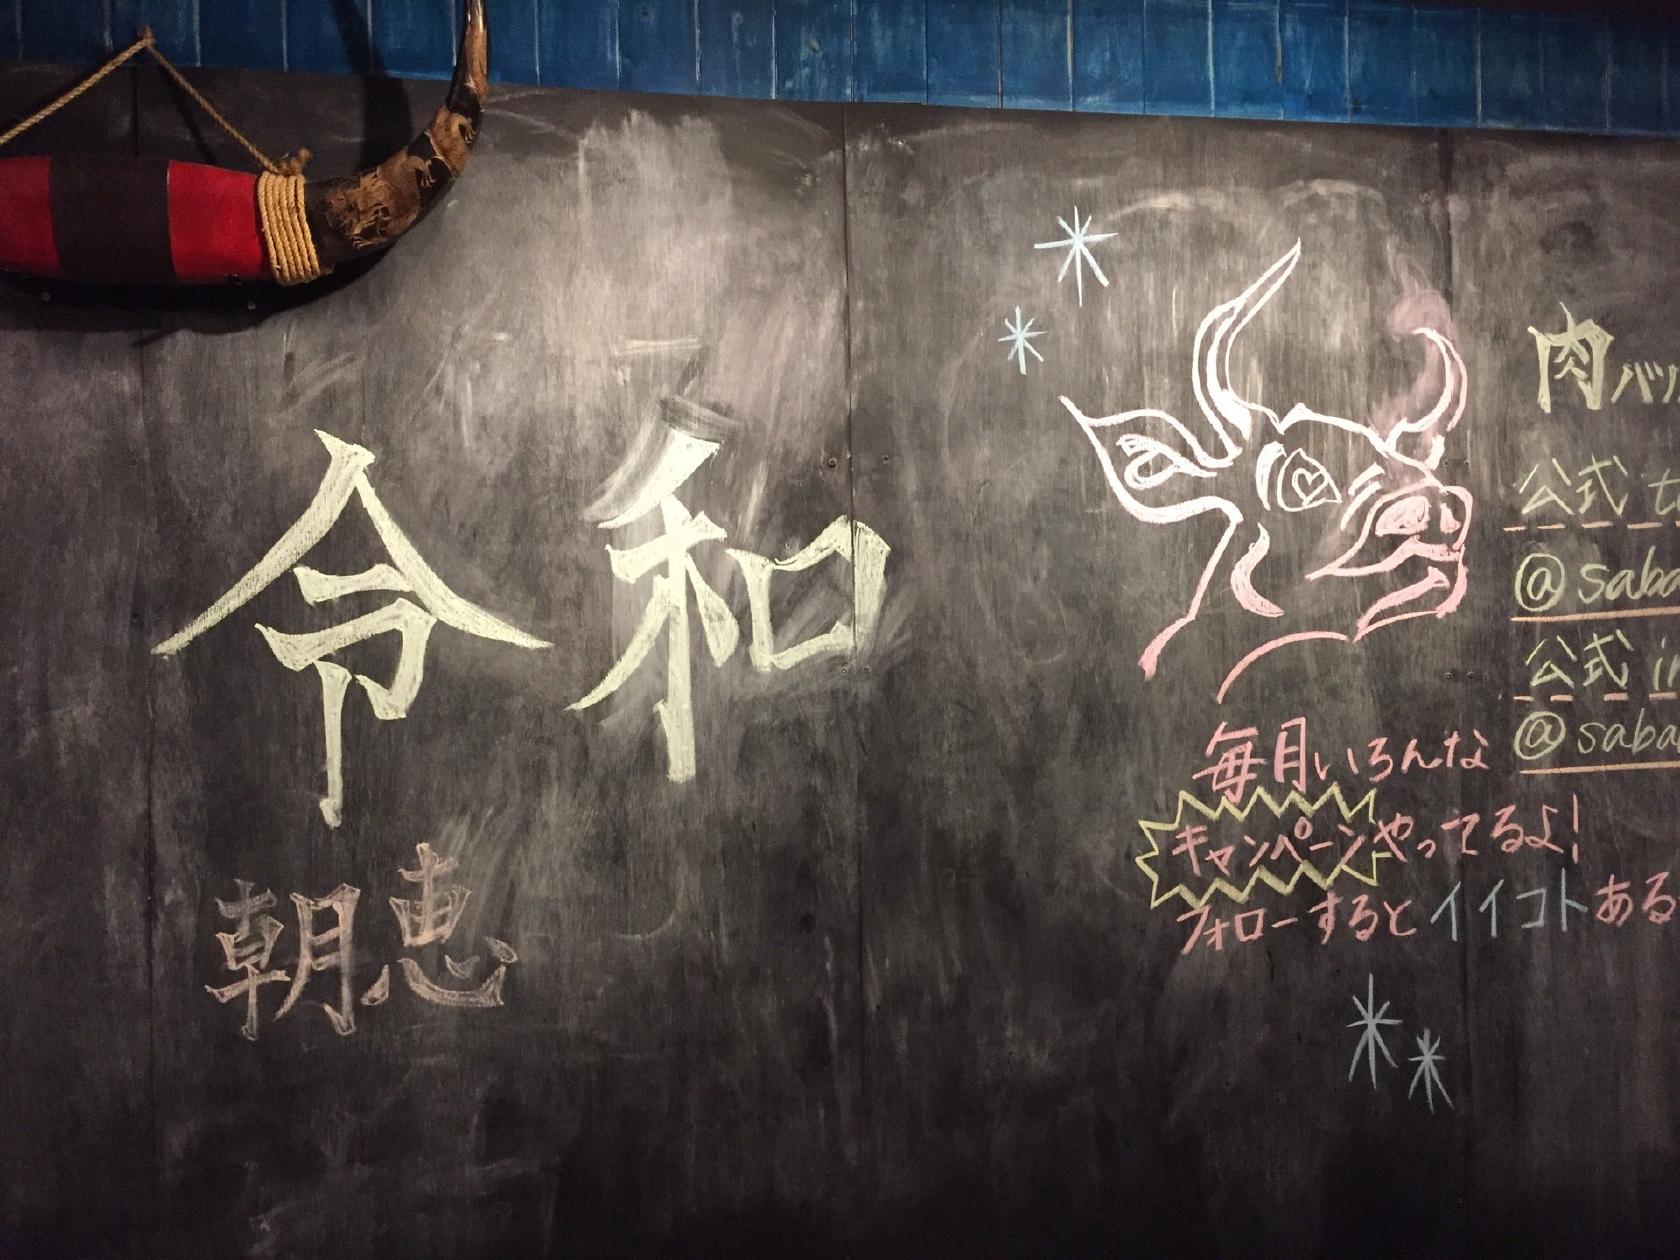 令和
朝恵
肉バル
公式
@saba
公式 in
@saba
毎月いろんな
キャンペーンやってるよ!
フォローするとイイコトある